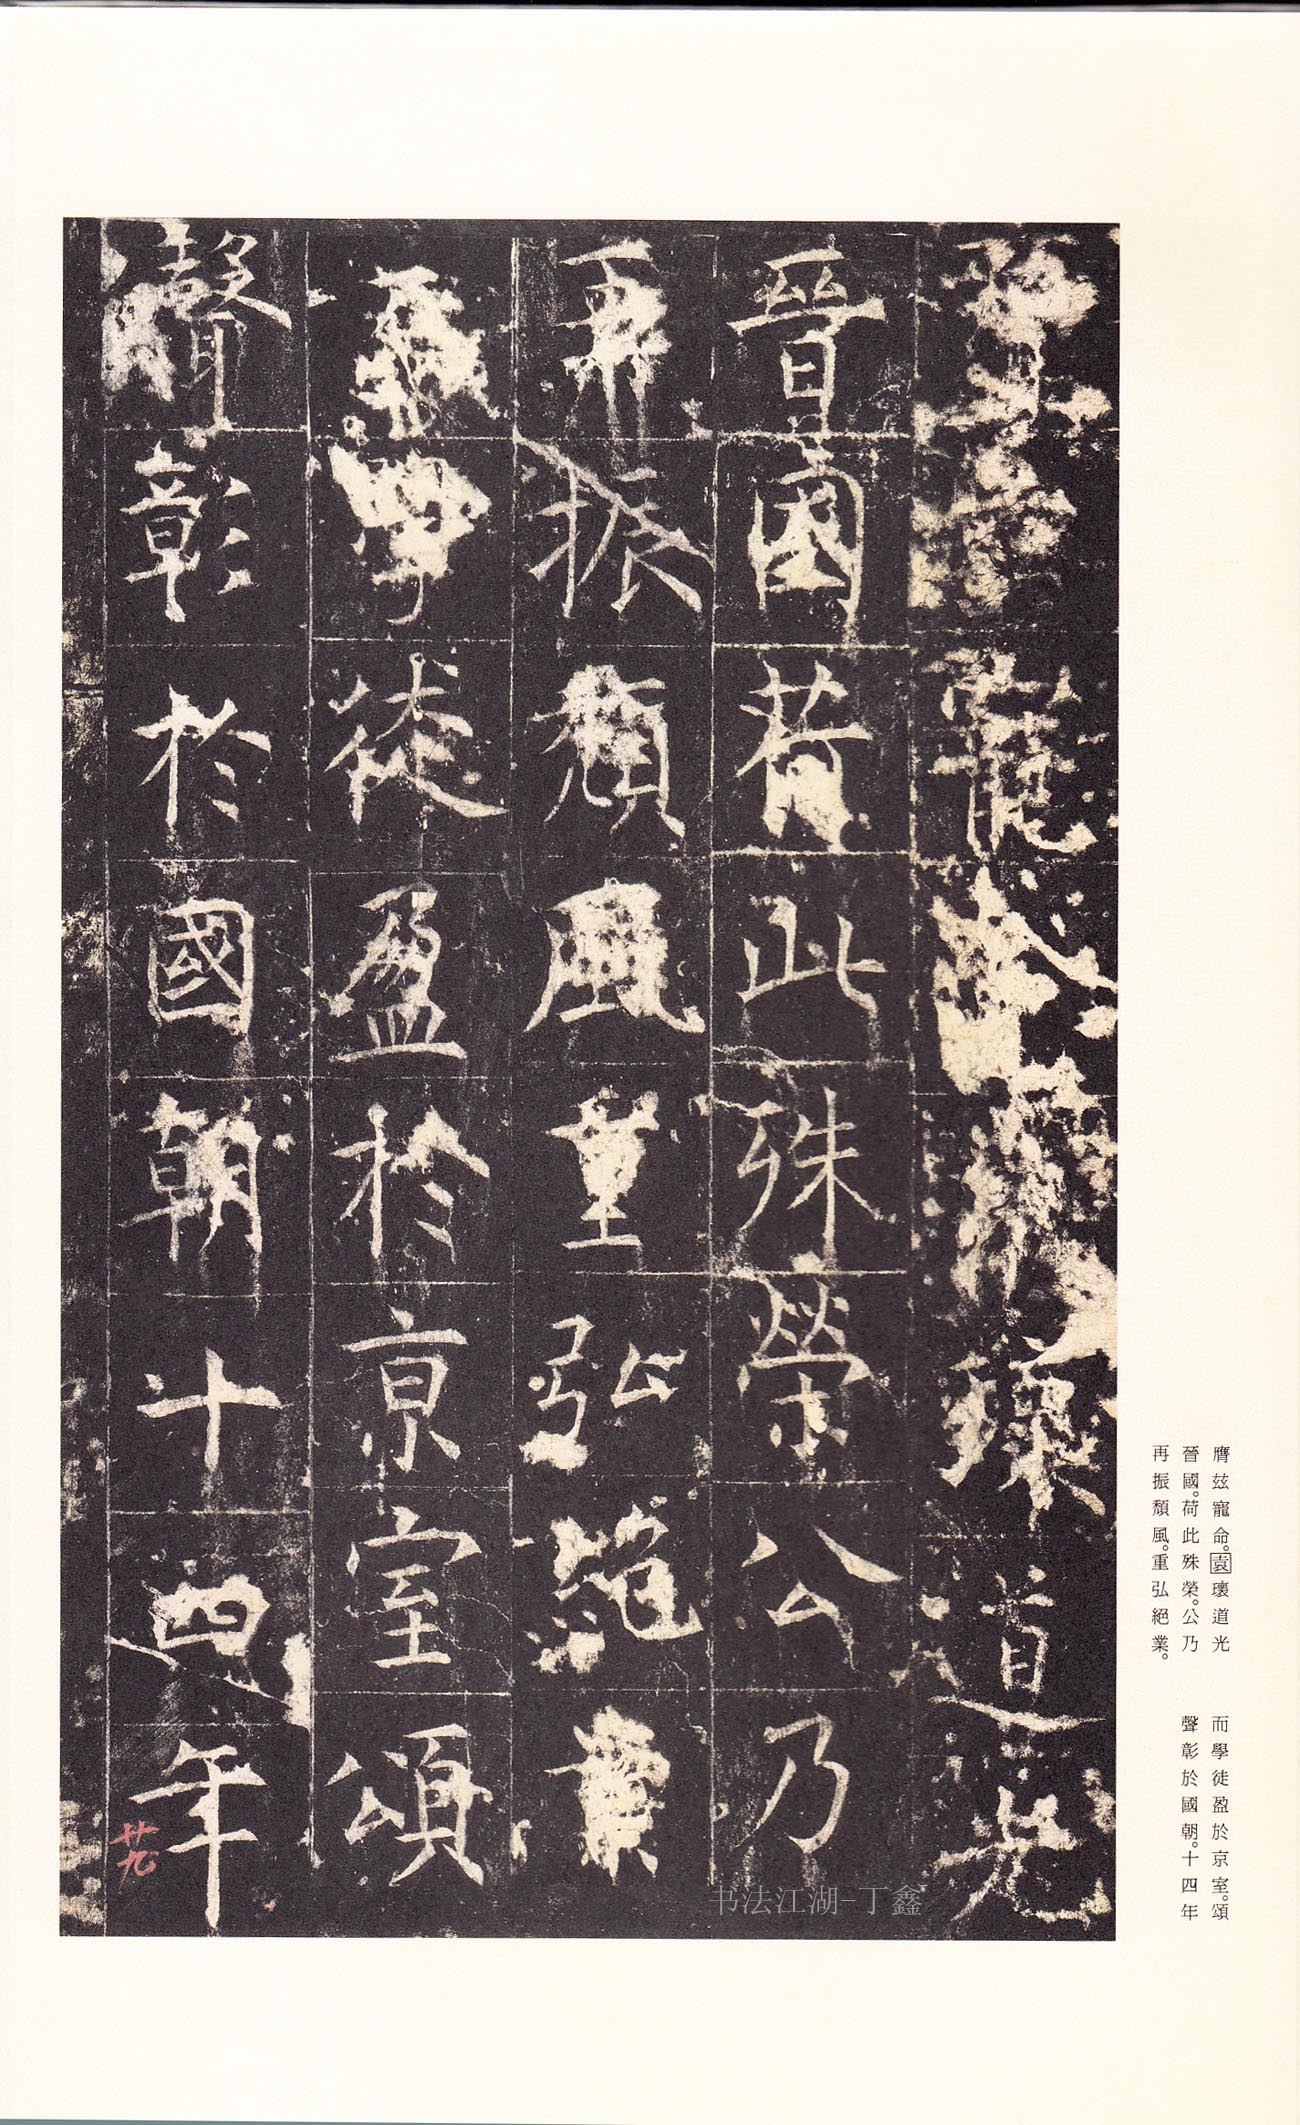 膺兹寵命袁瓌道光
晉國荷此殊榮公乃
再振頹風重弘絕業
而學徒盈於京室頌
聲彰於國朝十四年
廿九
书法江湖-丁鑫
膺茲寵命。袁瓌道光
晉國。荷此殊榮。公乃
再振頹風。重弘絕業。
而學徒盈於京室。頌
聲彰於國朝。十四年